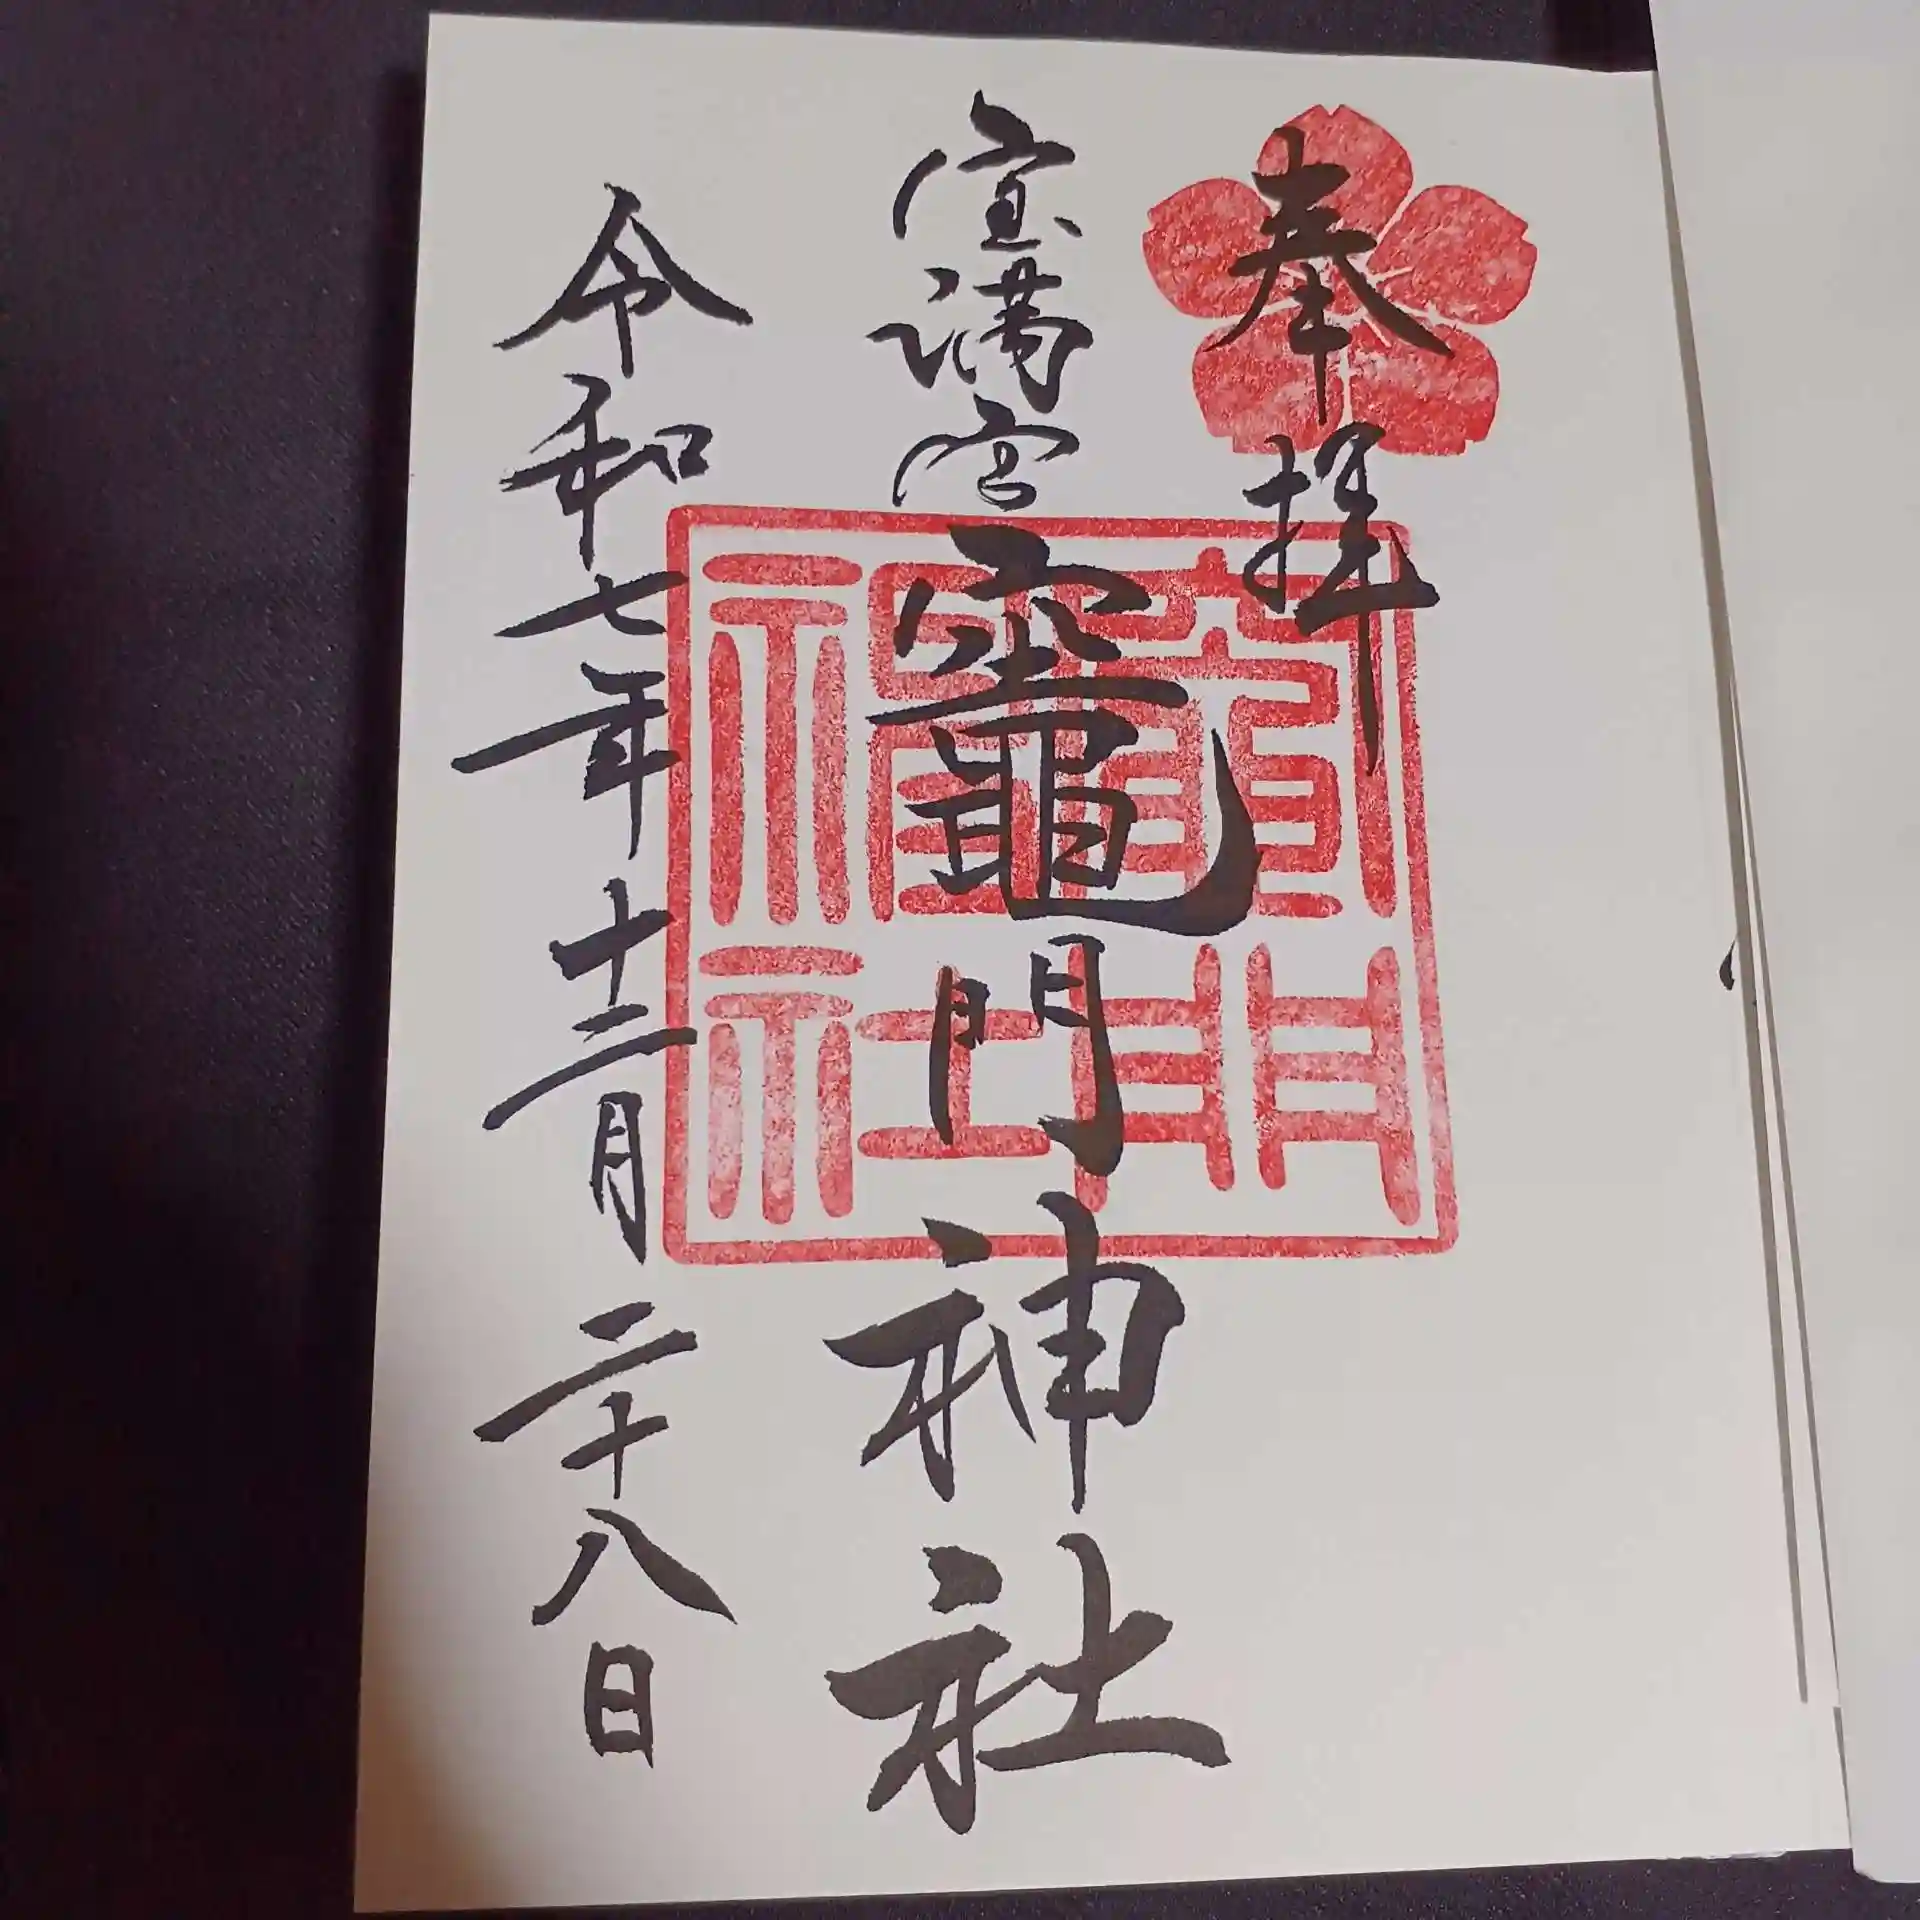 奉拝
宝満宮
竈門神社
令和七年十二月二十八日
竈門
神社